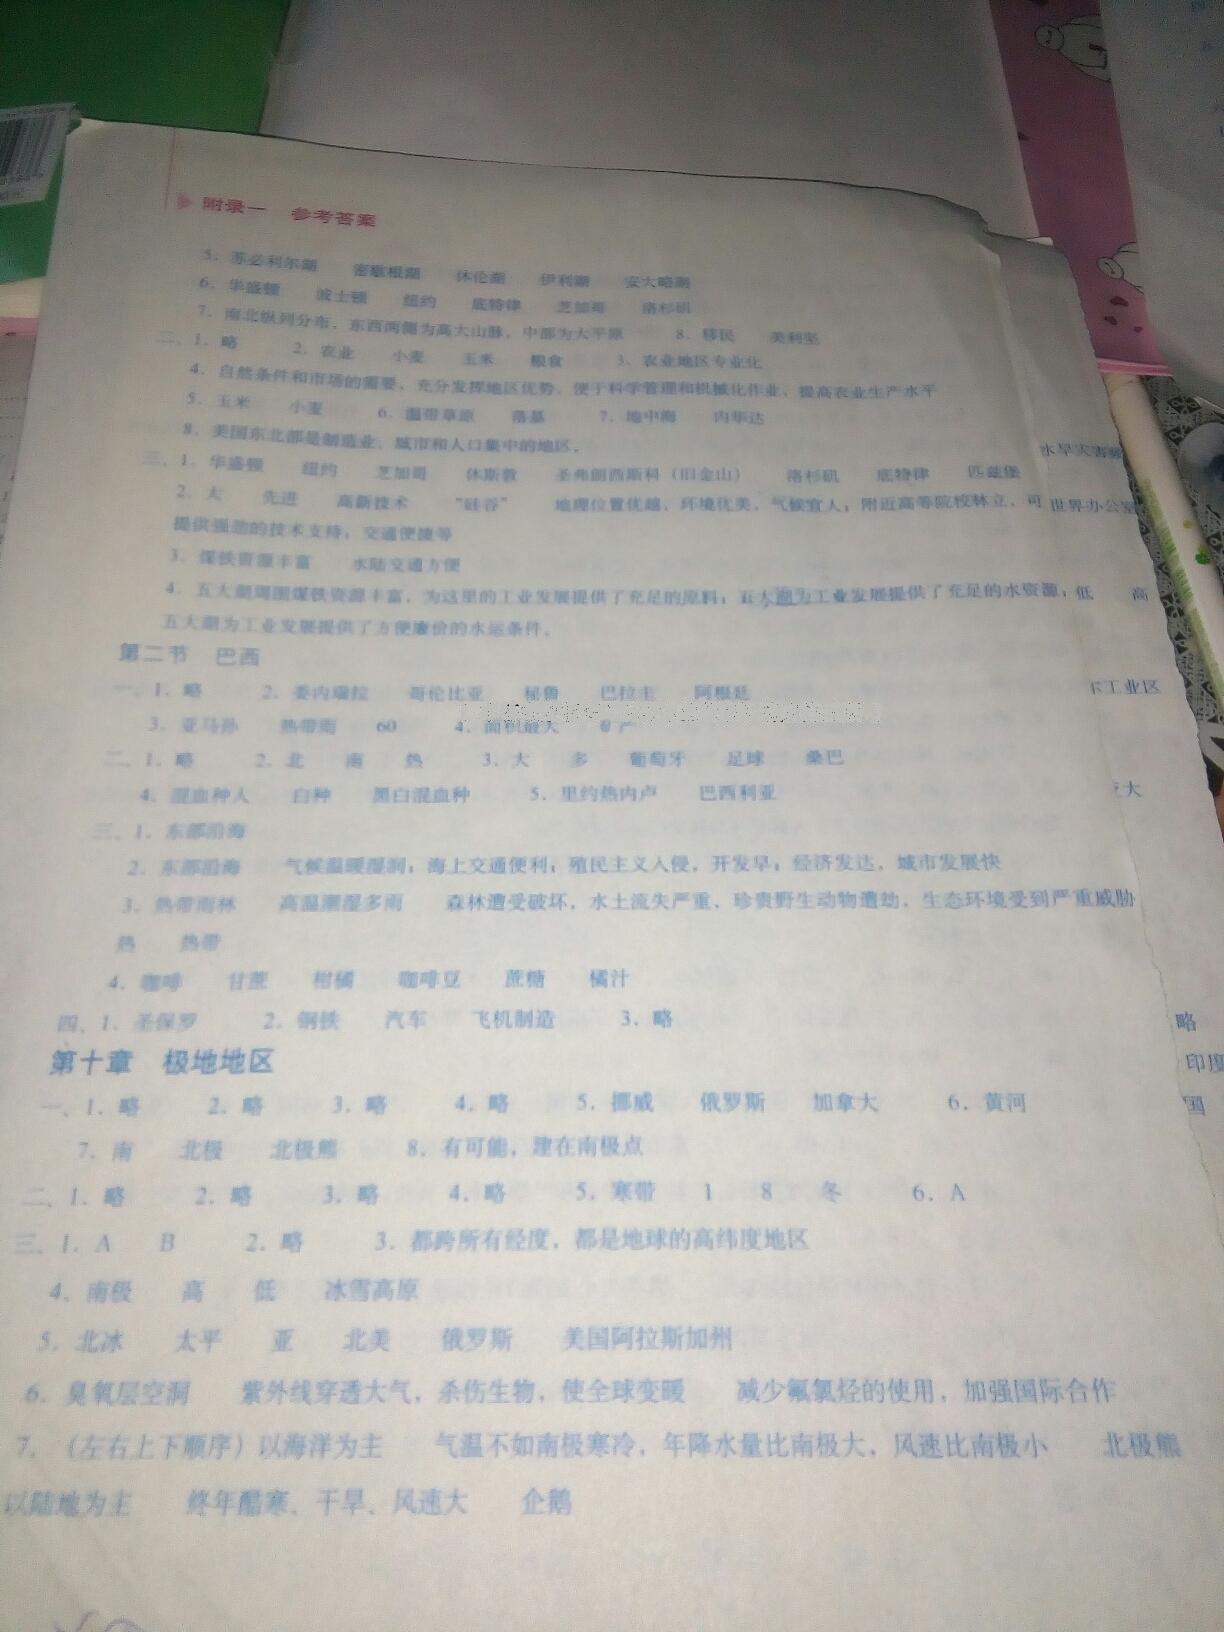 附录一 参考答案
5. 苏必利尔湖 密歇根湖 休伦湖 伊利湖 安大略湖
6. 华盛顿 波士顿 纽约 底特律 芝加哥 洛杉矶
7. 南北纵列分布，东西两侧为高大山脉，中部为大平原 8. 移民 美利坚
二、1. 略 2. 农业 小麦 玉米 粮食 3. 农业地区专业化
4. 自然条件和市场的需要，充分发挥地区优势、便于科学管理和机械化作业，提高农业生产水平
5. 玉米 小麦 6. 温带草原 落基 7. 地中海 内华达
8. 美国东北部是制造业、城市和人口集中的地区。
三、1. 华盛顿 纽约 芝加哥 休斯敦 圣弗朗西斯科（旧金山） 洛杉矶 底特律 匹兹堡
水旱灾害
2. 大 先进 高新技术 “硅谷” 地理位置优越，环境优美，气候宜人；附近高等院校林立，可
世界办公室
提供强劲的技术支持；交通便捷等
3. 煤铁资源丰富 水陆交通方便
4. 五大湖周围煤铁资源丰富，为这里的工业发展提供了充足的原料；五大湖为工业发展提供了充足的水资源；
低 高
五大湖为工业发展提供了方便廉价的水运条件。
第二节 巴西
一、1. 略 2. 委内瑞拉 哥伦比亚 秘鲁 巴拉圭 阿根廷
工业区
3. 亚马孙 热带雨 60 4. 面积最大
二、1. 略 2. 北 南 热 3. 大 多 葡萄牙 足球 桑巴
4. 混血种人 白种 黑白混血种 5. 里约热内卢 巴西利亚
大
三、1. 东部沿海
2. 东部沿海 气候温暖湿润；海上交通便利；殖民主义入侵，开发早；经济发达，城市发展快
3. 热带雨林 高温潮湿多雨 森林遭受破坏，水土流失严重，珍贵野生动物遭劫，生态环境受到严重威胁
热 热带
4. 咖啡 甘蔗 柑橘 咖啡豆 蔗糖 橘汁
四、1. 圣保罗 2. 钢铁 汽车 飞机制造 3. 略
略
第十章 极地地区
印度
一、1. 略 2. 略 3. 略 4. 略 5. 挪威 俄罗斯 加拿大 6. 黄河
国
7. 南 北极 北极熊 8. 有可能，建在南极点
二、1. 略 2. 略 3. 略 4. 略 5. 寒带 1 8 冬 6. A
三、1. A B 2. 略 3. 都跨所有经度，都是地球的高纬度地区
4. 南极 高 低 冰雪高原
5. 北冰 太平 亚 北美 俄罗斯 美国阿拉斯加州
6. 臭氧层空洞 紫外线穿透大气，杀伤生物，使全球变暖 减少氟氯烃的使用，加强国际合作
7. （左右上下顺序）以海洋为主 气温不如南极寒冷，年降水量比南极大，风速比南极小 北极熊
以陆地为主 终年酷寒、干旱、风速大 企鹅